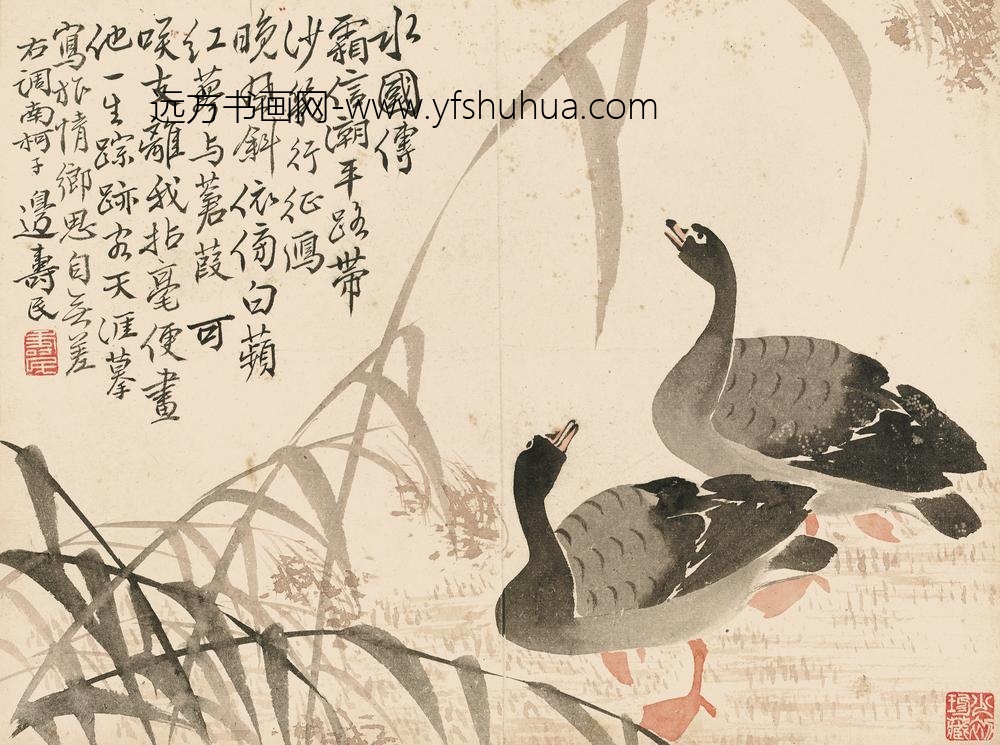 水國傳
霜信潮平路帶
沙幾行征鴈
晚烟斜依傍白蘋
红蓼与蒹葭 可
咲支離我拈毫便畫
他一生踪跡寄天涯摹
寫旅情鄉思自無差
右調南柯子 邊壽民
壽民
远方书画网-www.yfshuhua.com
珍藏